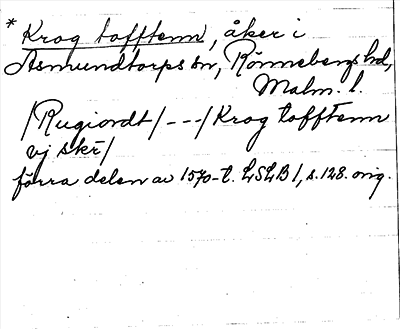 * Krog tofftenn, åker i
Asmundtorps sn, Rönnebergs hd,
Malm. l.
/Rugiordt/---/Krog tofftenn
vj skr/
förra delen av 1570-t. LSLB1, s.128. orig.